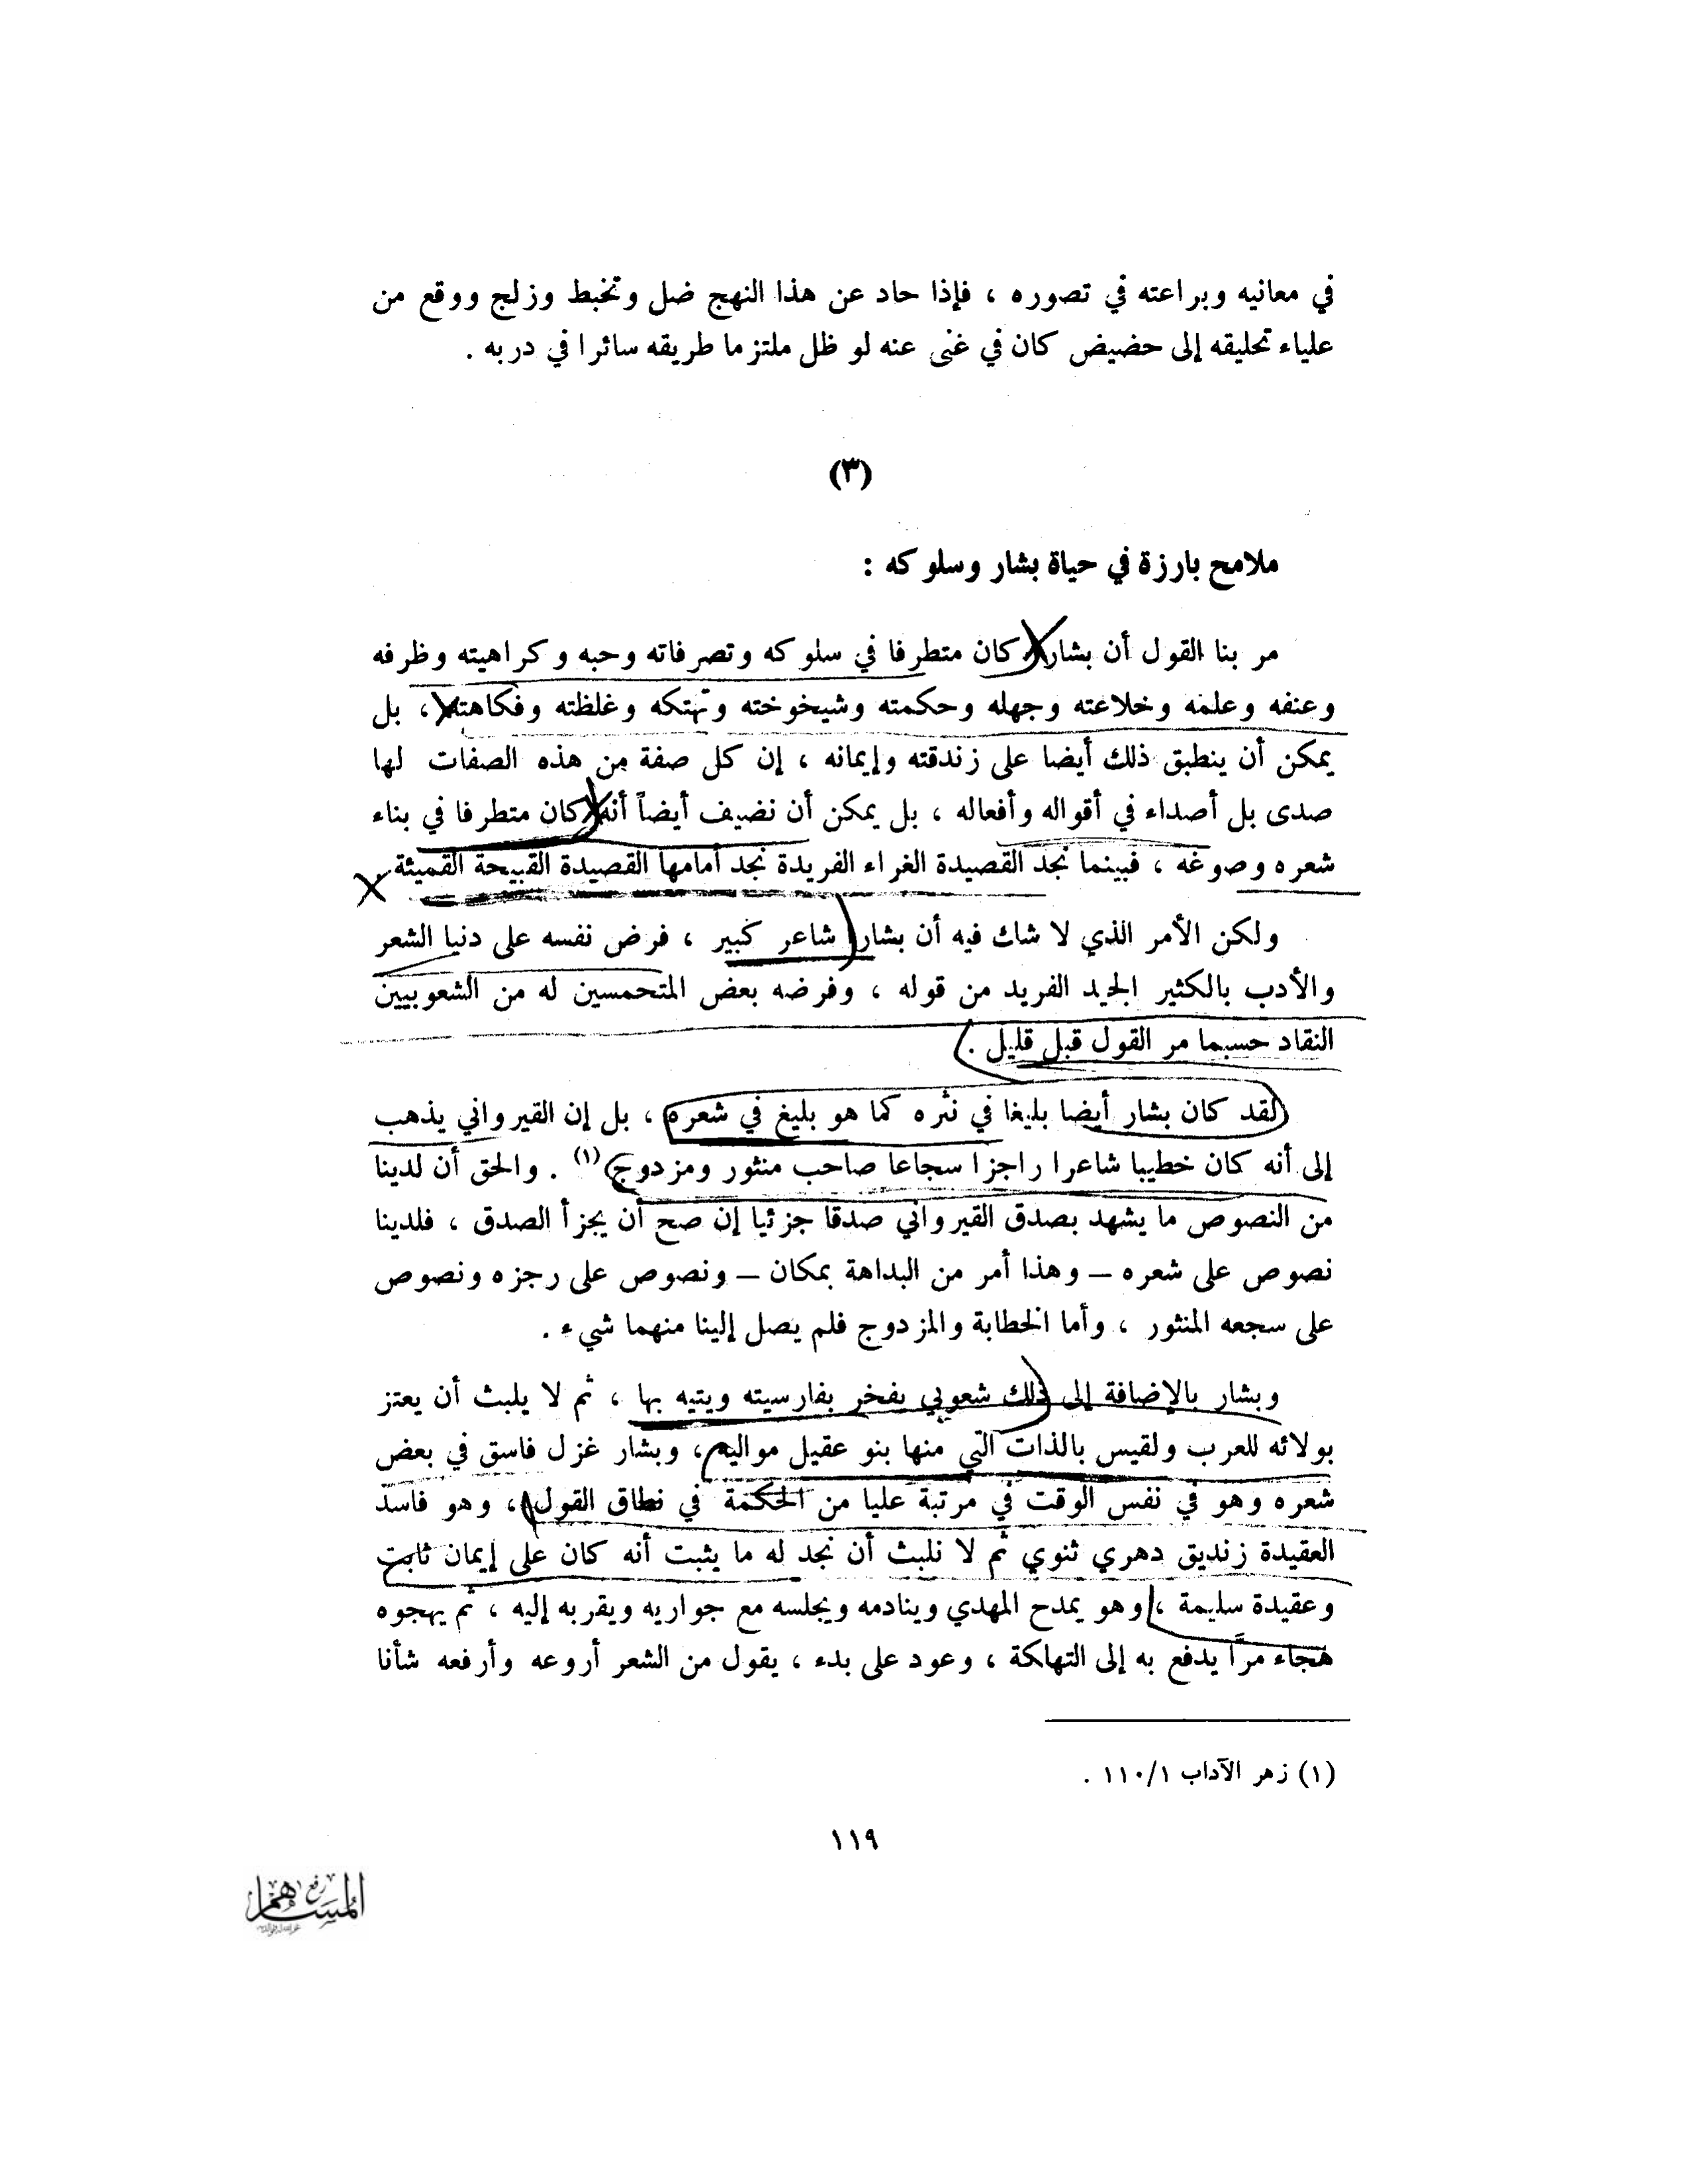 في معانيه وبراعته في تصوره ، فإذا حاد عن هذا النهج ضل وتخبط وزلج ووقع من
علياء تحليقه إلى حضيض كان في غنى عنه لو ظل ملتزما طريقه سائرا في دربه .
(٣)
ملامح بارزة في حياة بشار وسلوكه :
مر بنا القول أن بشار كان متطرفا في سلوكه وتصرفاته وحبه وكراهيته وظرفه
وعنفه وعلمه وخلاعته وجهله وحكمته وشيخوخته وتهتكه وغلظته وفكاهته ، بل
يمكن أن ينطبق ذلك أيضا على زندقته وإيمانه ، إن كل صفة من هذه الصفات لها
صدى بل أصداء في أقواله وأفعاله ، بل يمكن أن نضيف أيضاً أنه كان متطرفا في بناء
شعره وصوغه ، فبينما نجد القصيدة الغراء الفريدة نجد أمامها القصيدة القبيحة القميئة .
ولكن الأمر الذي لا شك فيه أن بشار شاعر كبير ، فرض نفسه على دنيا الشعر
والأدب بالكثير الجيد الفريد من قوله ، وفرضه بعض المتحمسين له من الشعوبيين
النقاد حسبما مر القول قبل قليل .
لقد كان بشار أيضا بليغا في نثره كما هو بليغ في شعره ، بل إن القيرواني يذهب
إلى أنه كان خطيبا شاعرا راجزا سجاعا صاحب منثور ومزدوج (١) . والحق أن لدينا
من النصوص ما يشهد بصدق القيرواني صدقا جزئيا إن صح أن يجزأ الصدق ، فلدينا
نصوص على شعره – وهذا أمر من البداهة بمكان – ونصوص على رجزه ونصوص
على سجعه المنثور ، وأما الخطابة والمزدوج فلم يصل إلينا منهما شيء .
وبشار بالإضافة إلى ذلك شعوبي يفخر بفارسيته ويتيه بها ، ثم لا يلبث أن يعتز
بولائه للعرب ولقيس بالذات التي منها بنو عقيل مواليه ، وبشار غزل فاسق في بعض
شعره وهو في نفس الوقت في مرتبة عليا من الحكمة في نطاق القول ، وهو فاسد
العقيدة زنديق دهري ثنوي ثم لا نلبث أن نجد له ما يثبت أنه كان على إيمان ثابت
وعقيدة سليمة ، وهو يمدح المهدي وينادمه ويجلسه مع جواريه ويقربه إليه ، ثم يهجوه
هجاء مرّاً يدفع به إلى التهلكة ، وعود على بدء ، يقول من الشعر أروعه وأرفعه شأنا
(١) زهر الآداب ١١٠/١ .
١١٩